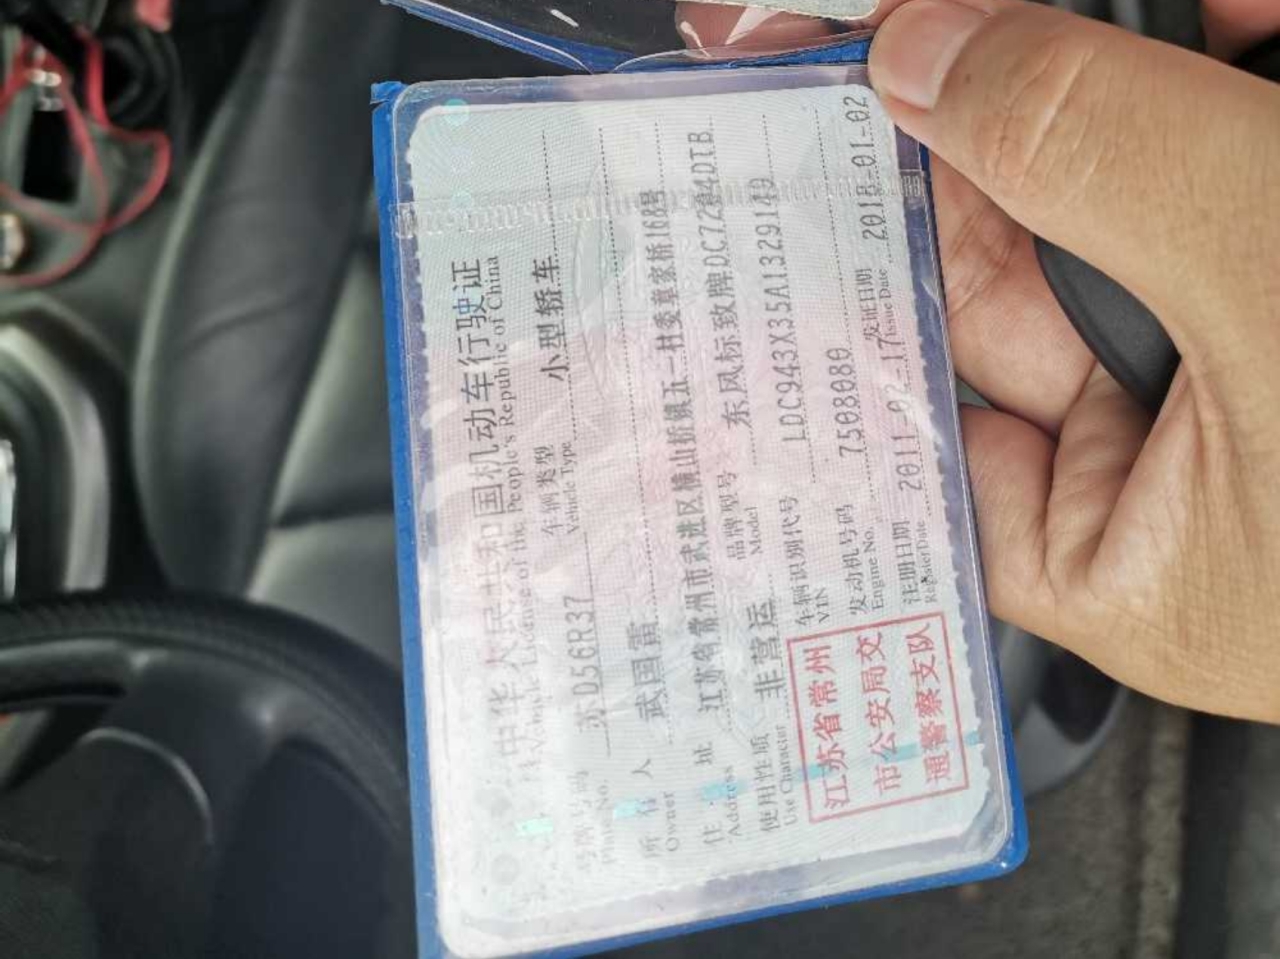 中华人民共和国机动车行驶证
Vehicle License of the People's Republic of China
号牌号码 苏D56R37 车辆类型 小型轿车
Plate No. Vehicle Type
所有人 武国雷
Owner
住址 江苏省常州市武进区横山桥镇五一村委章家桥168号
Address
使用性质 非营运 品牌型号 东风标致牌DC7204DTB
Use Character Model
江苏省常州
市公安局交
通警察支队
车辆识别代号 LDC943X35A1329149
VIN
发动机号码 7508080
Engine No.
注册日期 2011-02-17 发证日期 2018-01-02
Register Date Issue Date